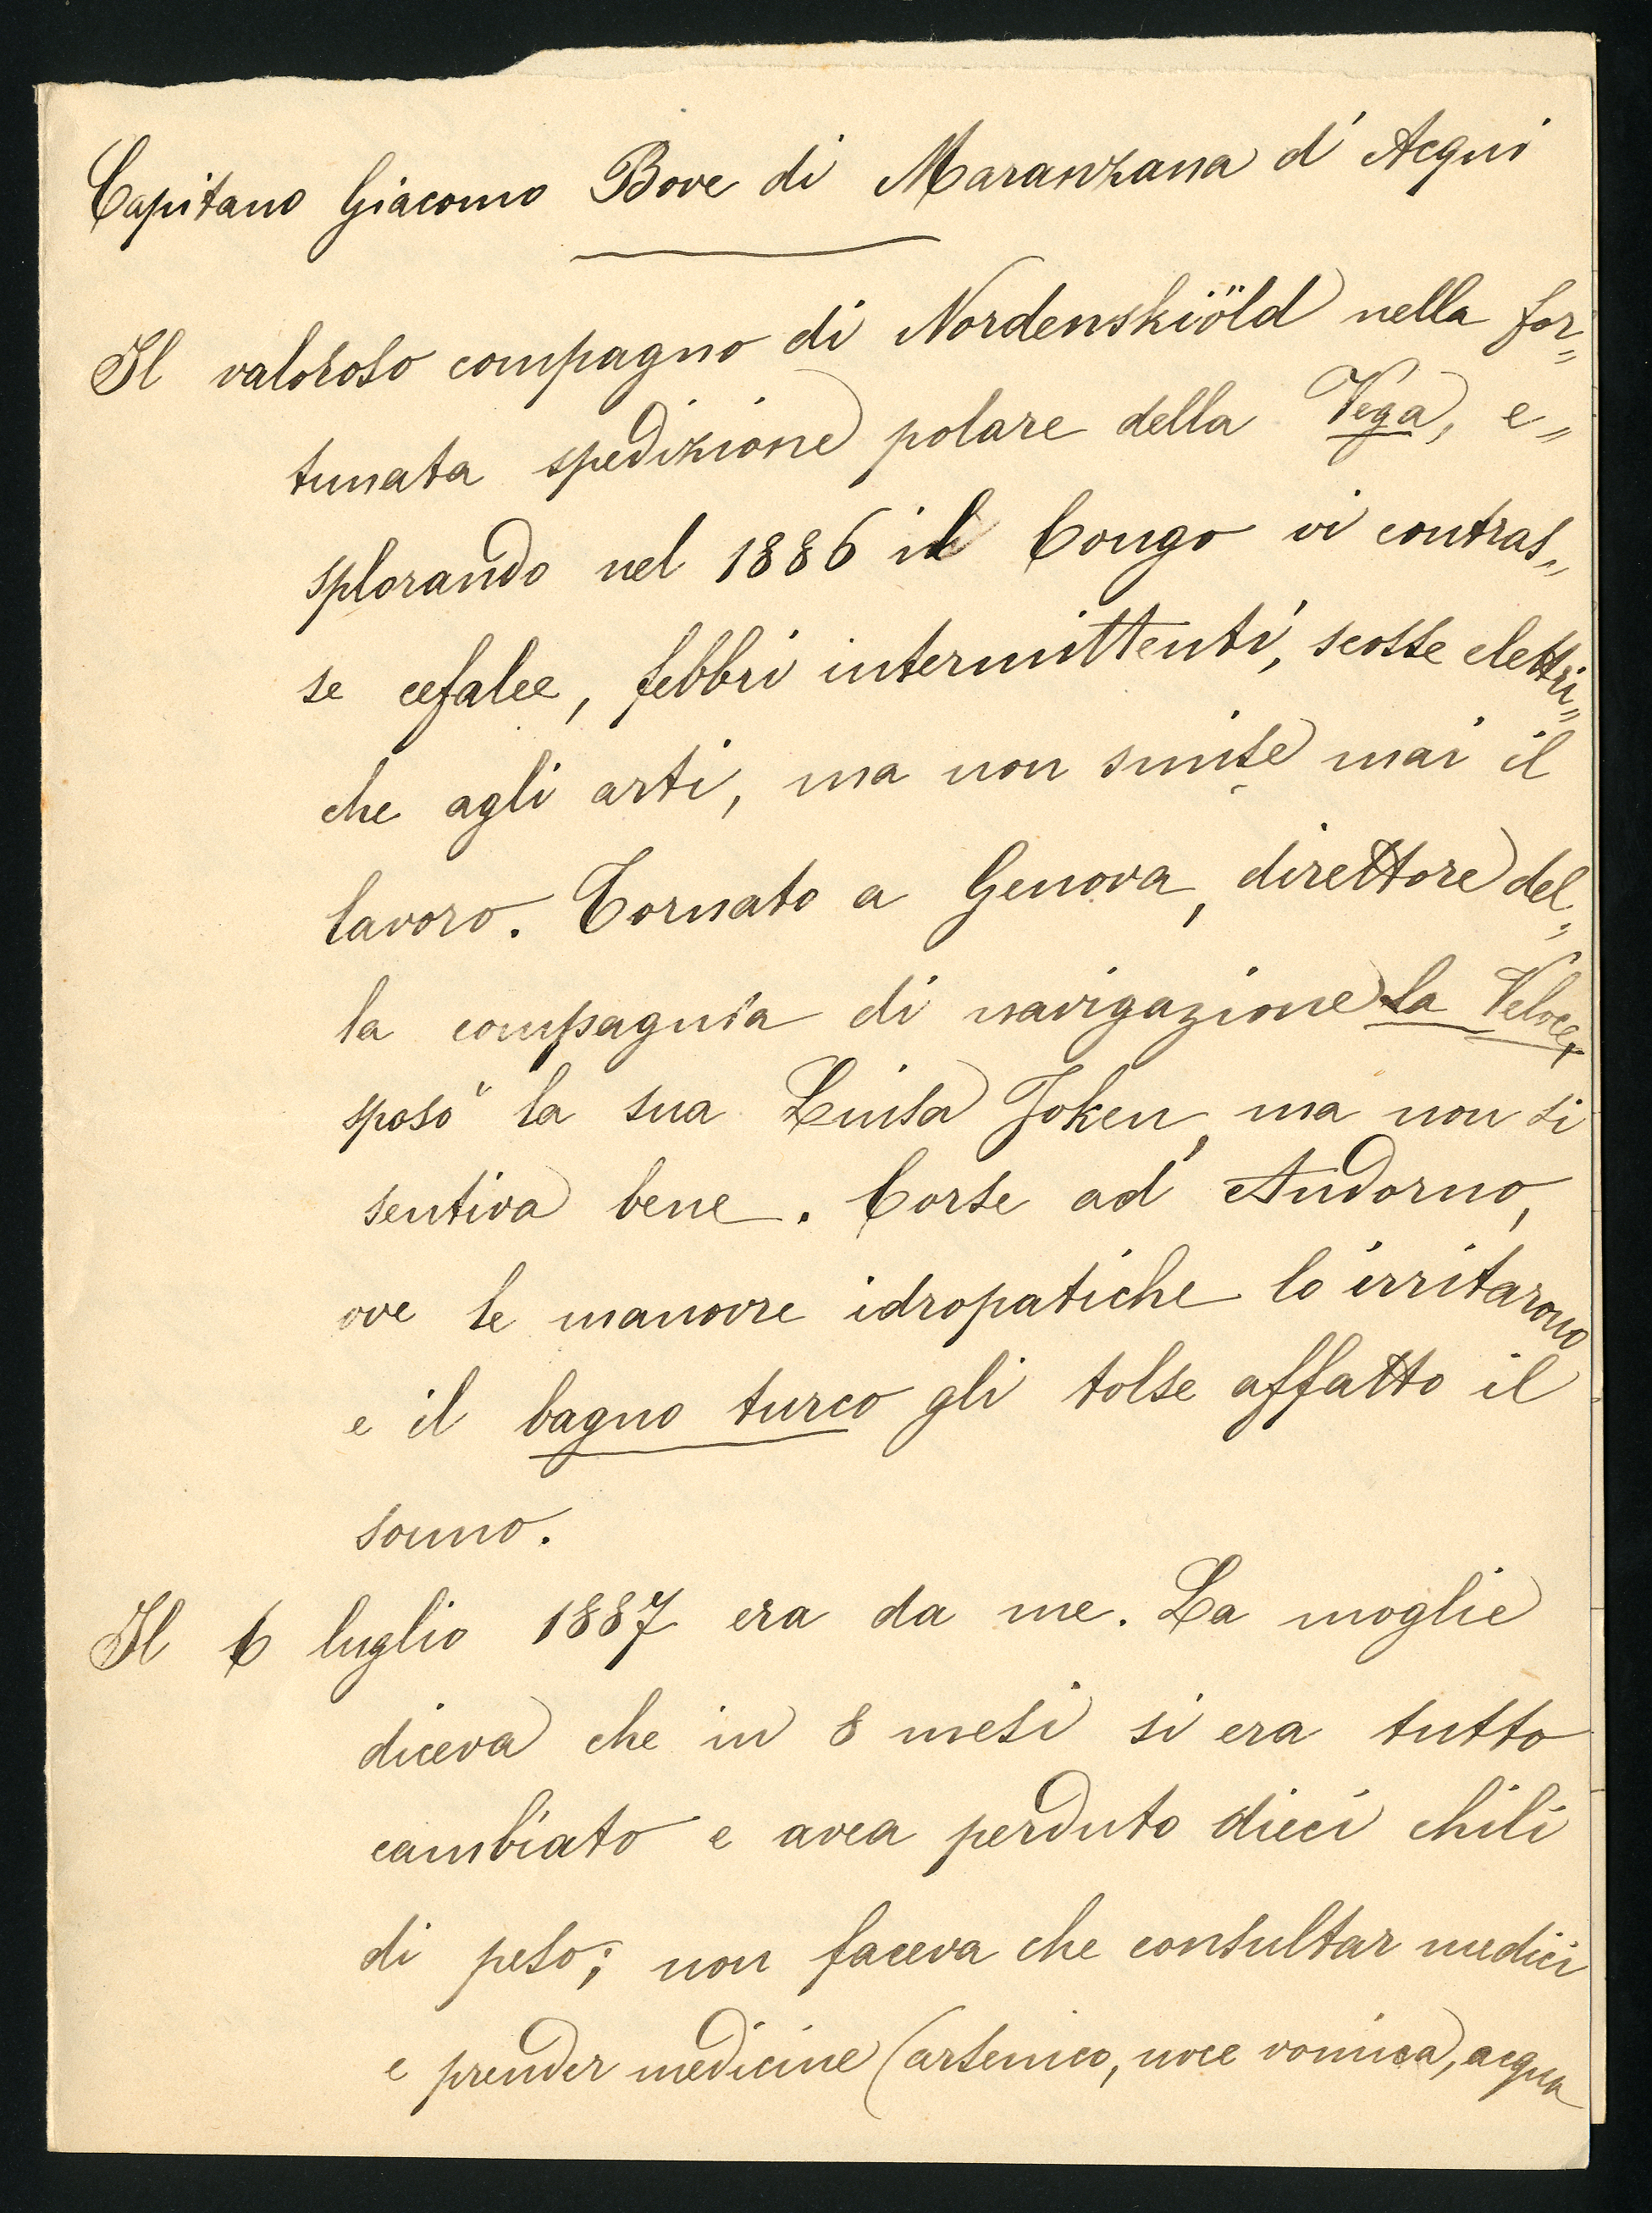 Capitano Giacomo Bove di Maranzana d'Acqui
Il valoroso compagno di Nordenskiöld nella for„
tunata spedizione polare della Vega, e„
splorando nel 1886 il Congo vi contras„
se cefalee, febbri intermittenti, scosse elettri„
che agli arti, ma non smise mai il
lavoro. Tornato a Genova, direttore del„
la compagnia di navigazione la Veloce,
sposò la sua Luisa Joken, ma non si
sentiva bene. Corse ad Andorno,
ove le manovre idropatiche lo irritarono
e il bagno turco gli tolse affatto il
sonno.
Il 6 luglio 1887 era da me. La moglie
diceva che in 8 mesi si era tutto
cambiato e avea perduto dieci chili
di peso; non faceva che consultar medici
e prender medicine (arsenico, noce vomica, acqua